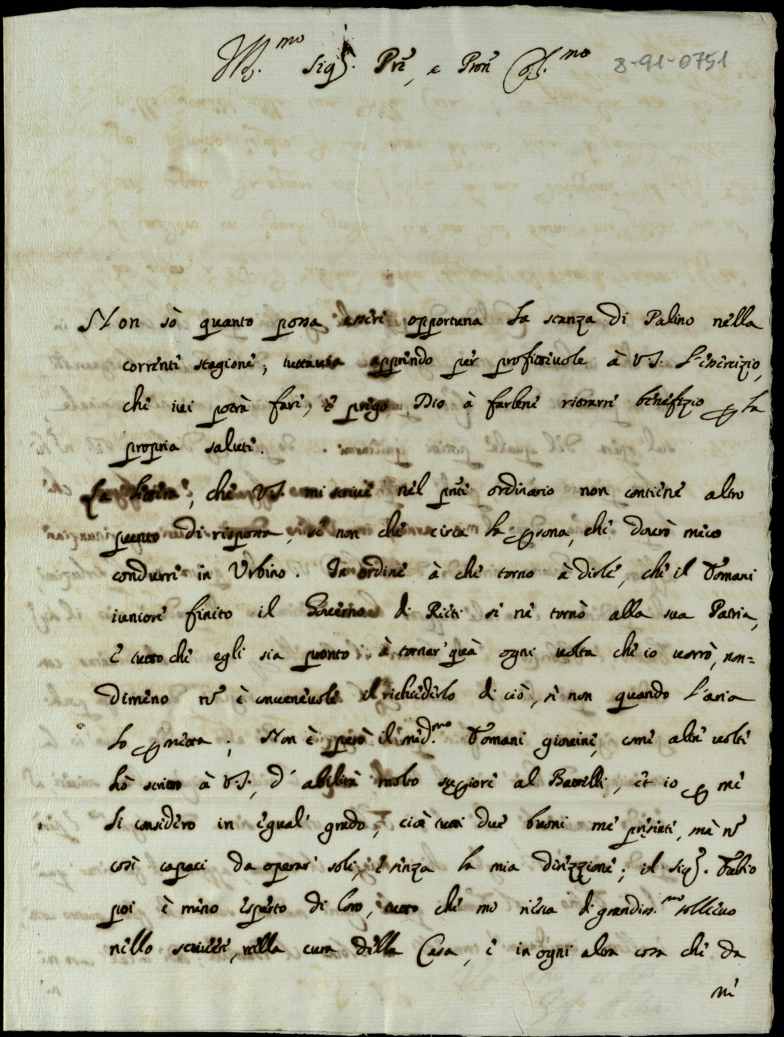 Ill.mo Sig.r Prē, e Pron Col.mo 8-91-0751
Non sò quanto possa essere opportuna la stanza di Palino nella
corrente stagione, tuttavia apprendo per profittevole à V.S. l'esercizio,
che ivi potrà fare, e prego Dio à farlene ritrarre benefizio p la
propria salute.
La lettera, che V.S. mi scrive nel pnte ordinario non contiene altro
punto di risposta, se non che circa la psona, che dovrò meco
condurre in Urbino. In ordine à che torno à dirle, che il Tomani
iuniore finito il Governo di Rieti se ne tornò alla sua Patria,
e tutto che egli sia pronto à tornar quà ogni volta che io vorrò, non=
dimeno nō è convenevole il richiederlo di ciò, se non quando l'aria
lo pmetta; Non è però il med.mo Tomani giovine, come altre volte
hò scritto à V.S., d'abilità molto supiore al Battelli, et io p me
li considero in egual grado, cioè tutti due buoni me presente, mà nō
così capaci da operar soli, e senza la mia direzzione; il Sig.r Fabio
poi è meno esperto di loro, tutto che me riesca di grandiss.mo sollievo
nello scrivere, nella cura della Casa, e in ogni altra cosa che da
me